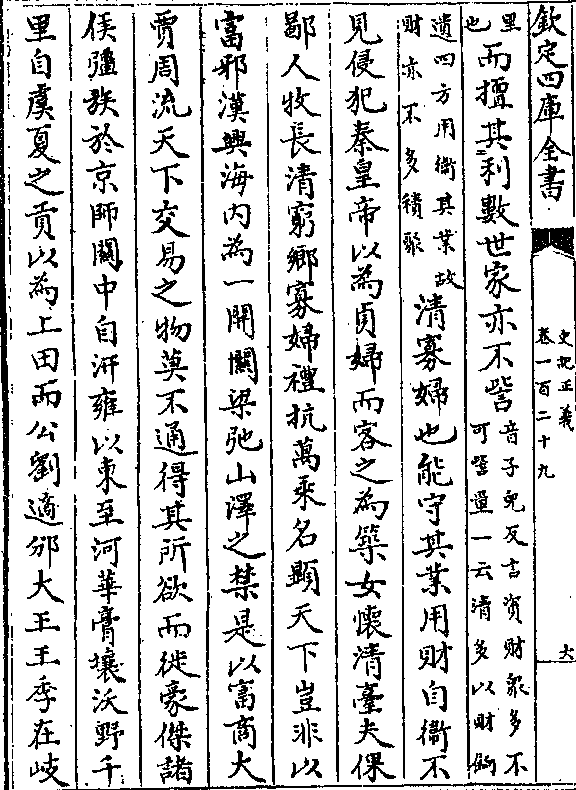 欽定四庫全書
史記正義
卷一百二十九
六
里
也
而擅其利數世家亦不訾
音子兒反言資財衆多不
可訾量一云清多以財餉
遺四方用衞其業故
財亦不多積聚
清寡婦也能守其業用財自衞不
見侵犯秦皇帝以為貞婦而客之為築女懷清臺夫倮
鄙人牧長清窮鄉寡婦禮抗萬乘名顯天下豈非以
富邪漢興海内為一開關梁弛山澤之禁是以富商大
賈周流天下交易之物莫不通得其所欲而徙豪傑諸
侯彊族於京師關中自汧雍以東至河華膏壤沃野千
里自虞夏之貢以為上田而公劉適邠大王王季在岐